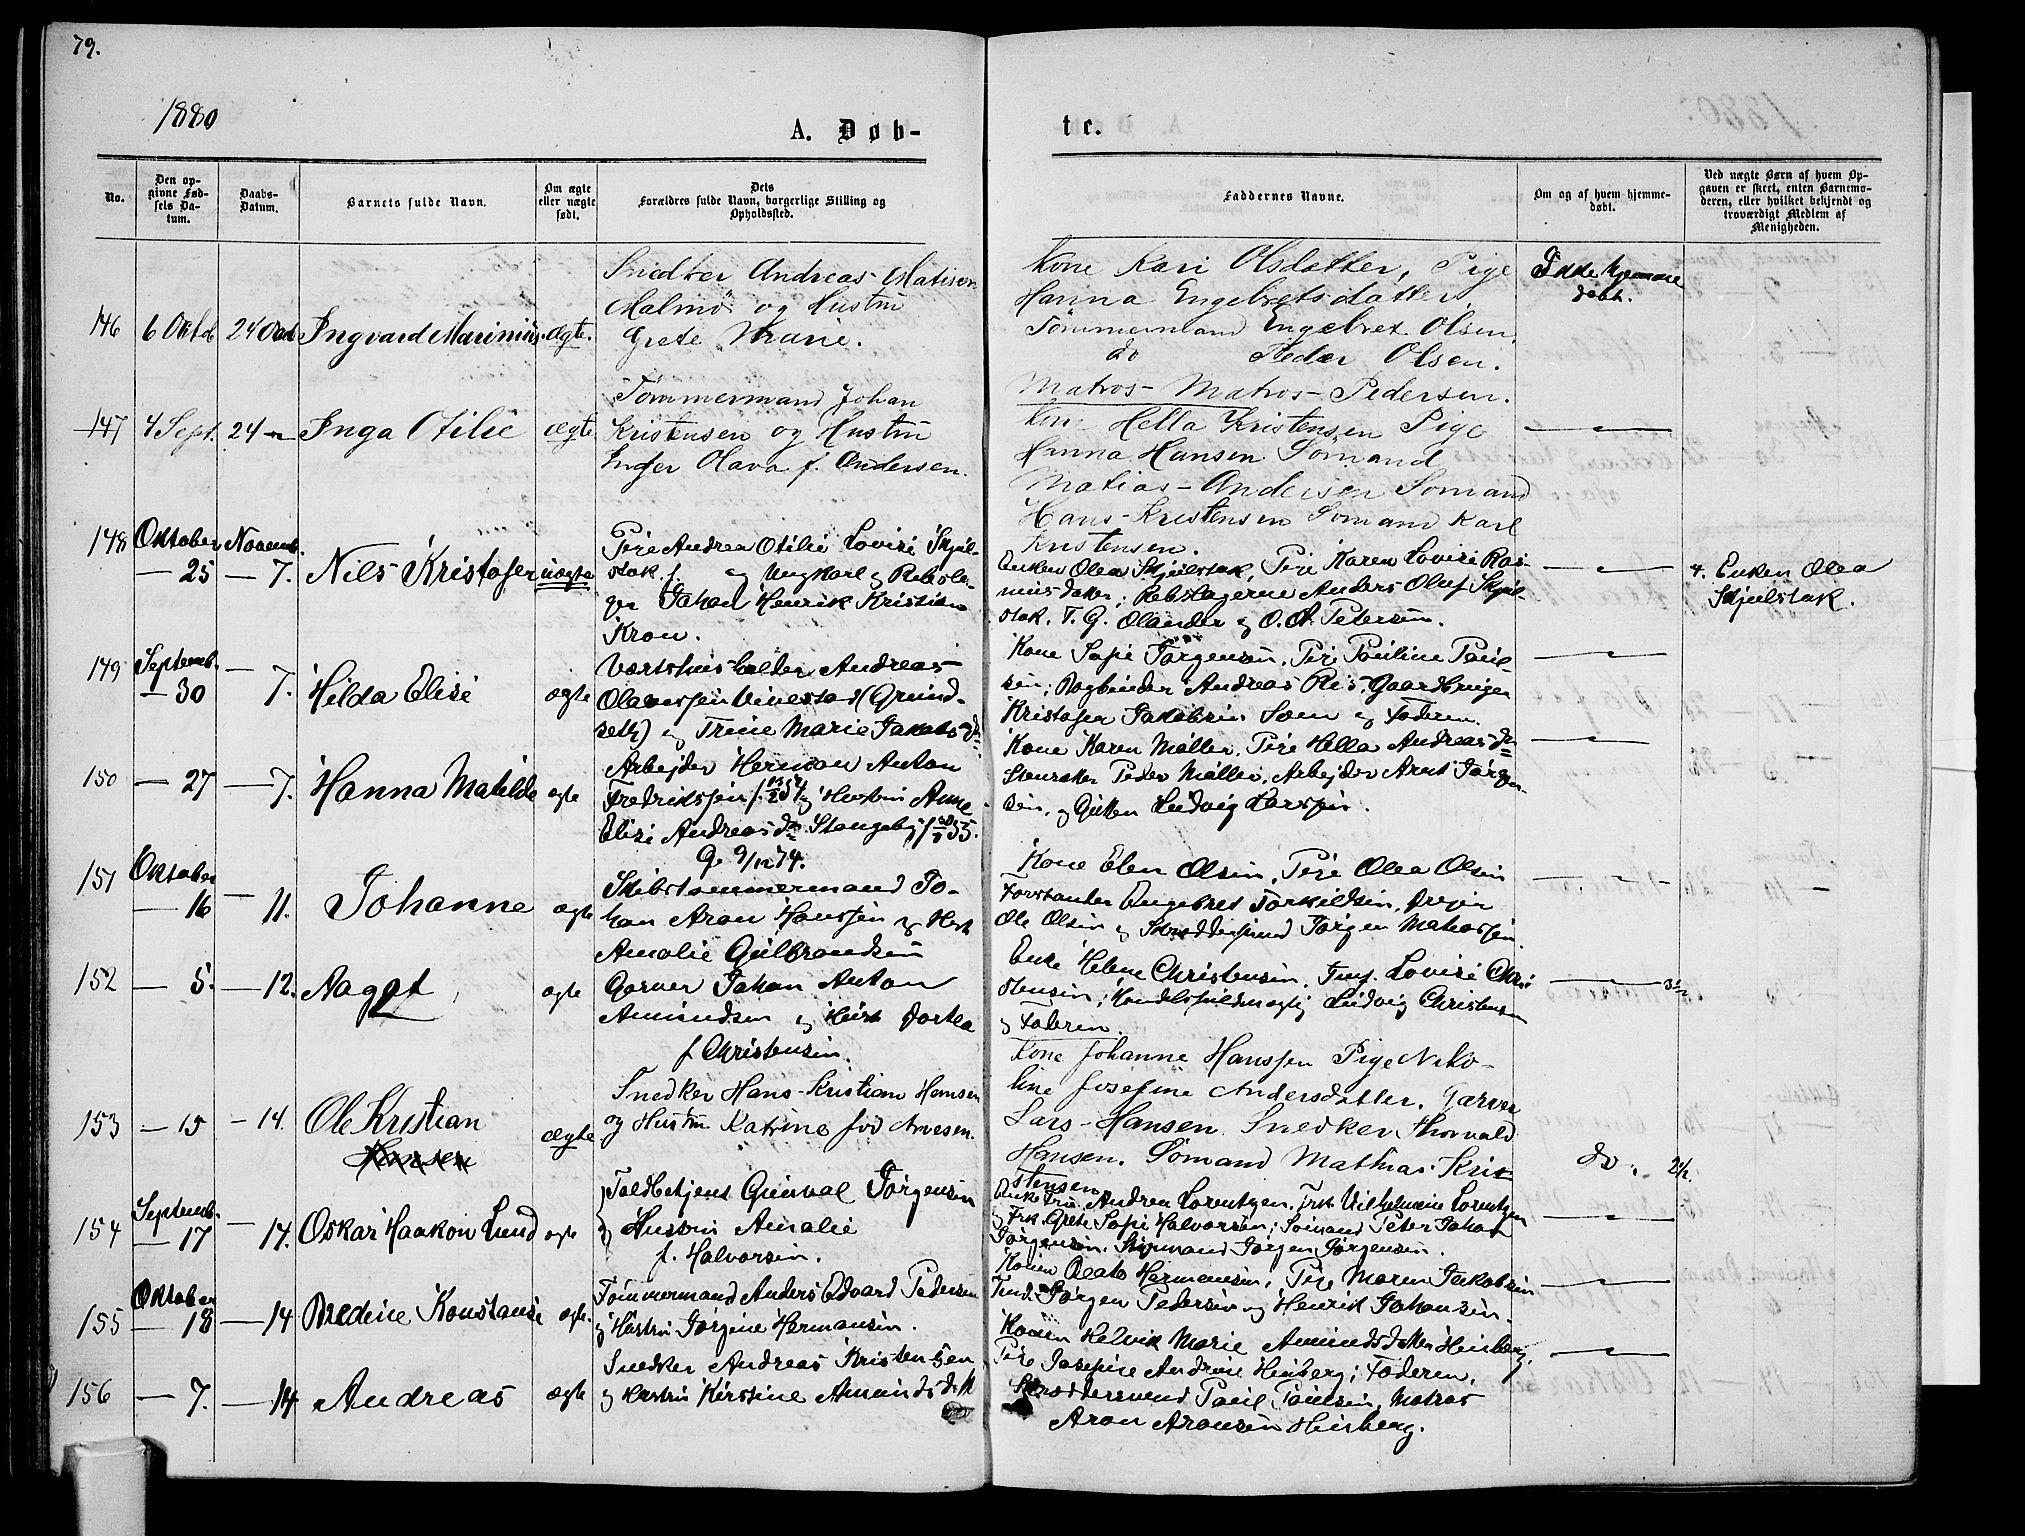 79.
1880
A. Døb-
te.
No.
Den op-
givne Fød-
sels Da-
tum.
Daabs-
Datum.
Barnets fulde Navn.
Om ægte
eller uægte
født.
Dets
Forældres fulde Navn, borgerlige Stilling og
Opholdssted.
Faddernes Navne.
Om og af hvem hjemme-
døbt.
Ved uægte Børn af hvem Op-
gaven er skeet, enten Barnemo-
deren, eller hvilket bekjendt og
troværdigt Medlem af
Menigheden.
146 6 Oktob 24 Oct Ingvard Marinius ægte.
Snedker Andreas Matisen
Malmö og Hustru
Grete Marie.
Kone Kari Olsdatter, Pige
Hanna Engebretsdatter,
Tømmermand Engebret Olsen,
do Peder Olsen.
Matros- Matros- Pedersen.
Ikke hjemme
døbt.
147 4 Sept. 24 Inga Otilie ægte
Tömmermand Johan
Kristensen og Hustru
Inger Olava f. Andersen.
Kone Hella Kristensen Pige
Hanna Hansen Sömand
Matias Andersen Sömand
Hans Kristensen Sömand Karl
Kristensen.
148 Oktober Novemb.
— 25 — 7. Nils Kristofer uægte
Pige Andrea Otilie Lovise Skjel-
stak og Ungkarl og Rebsla-
ger Johan Henrik Kristian
Kron.
Enken Olea Skjelstak, Pige Karen Lovise Ras-
musdatter; Rebslagerne Anders Oluf Skjel-
stak. T. G. Olander og O. A. Petersen.
4. Enken Olea
Skjelstak.
149 Septemb.
— 30 — 7. Hilda Elise ægte
Værtshusholder Andreas
Olavessen Vinestad (Grund-
seth) og Trine Marie Jakobsd
Kone Sofie Jørgensen, Pige Pauline Paul-
sen; Bogbinder Andreas Ris, Gaardbruger
Kristofer Jakobsen Soen og Faderen.
150 — 27 — 7. Hanna Matilde ægte
Arbejder Herman Anton
Fredriksen f. 54 og Hustru Anne
Elise Andreasd. Stangeby f. 55.
G. 9/12 74.
Kone Karen Møller, Pige Hella Andreasd
Peder Møller, Arbejder Arnt Jørgen-
sen, og Ludvig Larssen.
151 Oktober
— 16 — 11. Johanne ægte
Skibstømmermand Jo-
han Aron Hanssen og Hust
Amalie Gulbrandsen
Kone Elen Olsen, Pige Olea Olsen
Forstander Engebret Torkildsen, Drejer
Ole Olsen og Skræddersvend Jørgen Mathssen.
152 — 5. — 12. Aagot ægte
Garver Johan Anton
Amundsen og Hust Dortea
f Christensen.
Enke Helene Christensen, Jmf. Lovise Chri
stensen; Handelsfuldmægtig Ludvig Christensen
og Faderen.
153 — 15 — 14. Ole Kristian ægte
Snedker Hans Kristian Hansen
og Hustru Katrine fød Arvesen.
Kone Johanne Hanssen Pige Niko-
line Josefine Andersdatter, Garver
Lars Hansen Snedker Thorvald
Hansen. Sömand Mathias Kris
stensen
do. 2½.
154 Septemb.
— 17 — 14. Oskar Haakon Lund ægte
Toldbetjent Gunval Jørgensen
og Hustru Amalie
f. Halvorsen.
Enkefru Andrea Lorentzen, Frk Vilhelmine Lorentzen
og Frk. Grete Sofie Halvorsen; Sømand Peter Johan
Jørgensen. Skipmand Jørgen Jørgensen.
155 Oktober
— 18 — 14 Bredine Konstanse ægte.
Tømmermand Anders Edvard Pedersen
og Hustru Jørgine Hermansen.
Konen Beate Hermansen, Pige Maren Jakobsen
Jørgen Pedersen og Henrik Johansen.
156 — 7. — 14 Andreas ægte
Snedker Andreas Kristensen
og Hustru Kirstine Amundsdatt
Konen Helvik Marie Amundsdatter Heisberg,
Pige Josefine Andrine Heisberg; Faderen,
Skræddersvend Paul Paulsen, Matros
Aron Aronsen Heisberg.